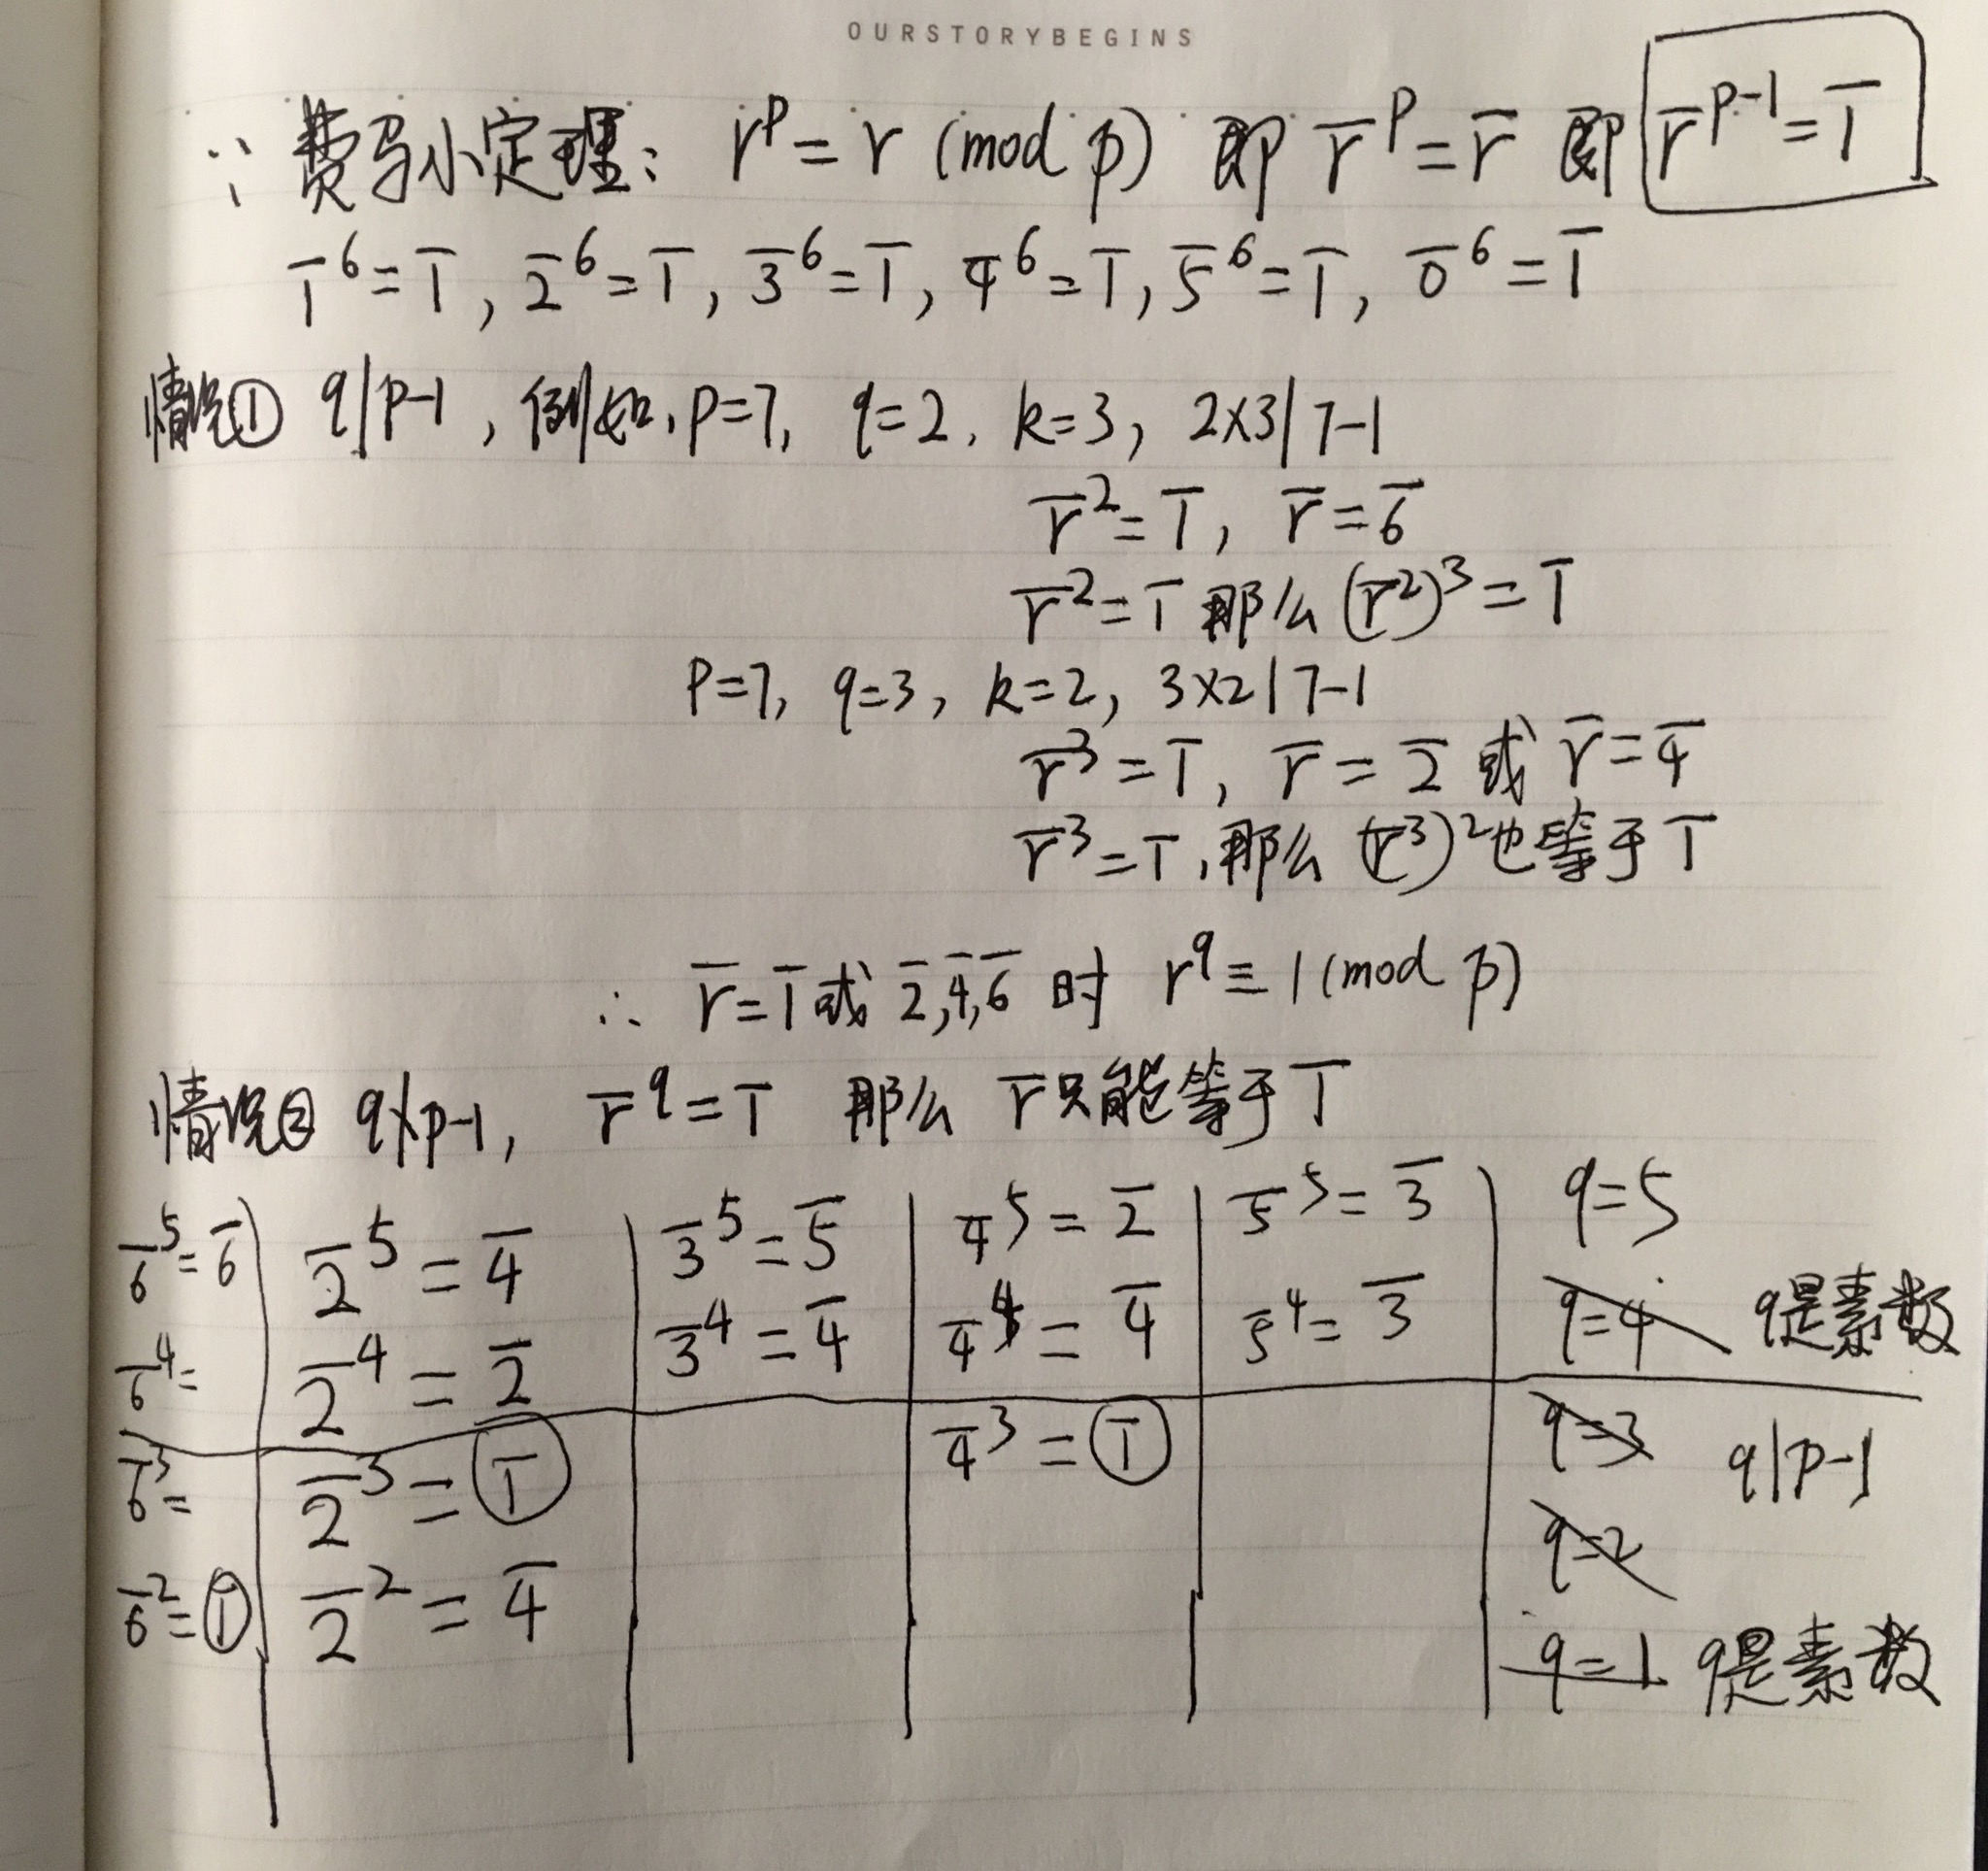 OURSTORYBEGINS
∵ 费马小定理: r^p = r (mod p) 即 r̄^p = r̄ 即 r̄^{p-1} = 1̄
1̄^6 = 1̄, 2̄^6 = 1̄, 3̄^6 = 1̄, 4̄^6 = 1̄, 5̄^6 = 1̄, 0̄^6 = 1̄
情况① q|p-1, 例如, p=7, q=2, k=3, 2×3|7-1
r̄^2 = 1̄, r̄ = 6̄
r̄^2 = 1̄ 那么 (r̄^2)^3 = 1̄
P=7, q=3, k=2, 3×2|7-1
r̄^3 = 1̄, r̄ = 2̄ 或 r̄ = 4̄
r̄^3 = 1̄, 那么 (r̄^3)^2 也等于 1̄
∴ r̄ = 1̄ 或 2̄, 4̄, 6̄ 时 r^q ≡ 1 (mod p)
情况② q∤p-1, r̄^q = 1̄ 那么 r̄ 只能等于 1̄
6̄^5 = 6̄ 2̄^5 = 4̄ 3̄^5 = 5̄ 4̄^5 = 2̄ 5̄^5 = 3̄ q=5
6̄^4 = 2̄^4 = 2̄ 3̄^4 = 4̄ 4̄^4 = 4̄ 5̄^4 = 3̄ q=4 q是素数
6̄^3 = 2̄^3 = 1̄ 4̄^3 = 1̄ q=3 q|p-1
6̄^2 = 1̄ 2̄^2 = 4̄ q=2
q=1 q是素数